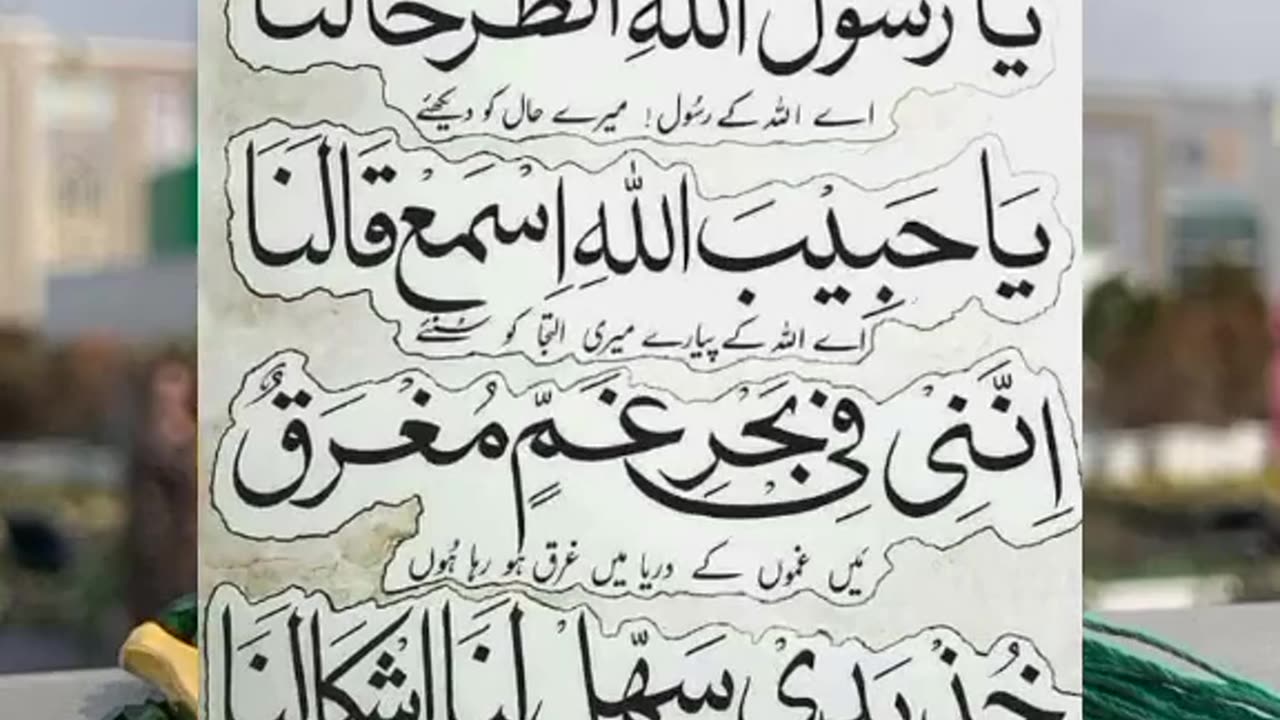 يا رسول اللهِ انظر حالنا
اے اللہ کے رسُول! میرے حال کو دیکھئے
يَا حَبِيْبَ اللهِ اِسْمَعْ قَالَنَا
اے اللہ کے پیارے میری التجا کو سُنئے
اِنَّنِىْ فِىْ بَحْرِ غَمٍّ مُغْرَقٌ
مَیں غموں کے دریا میں غرق ہو رہا ہُوں
خُذْ يَدِىْ سَهِّلْ لَنَا اَشْكَالَنَا